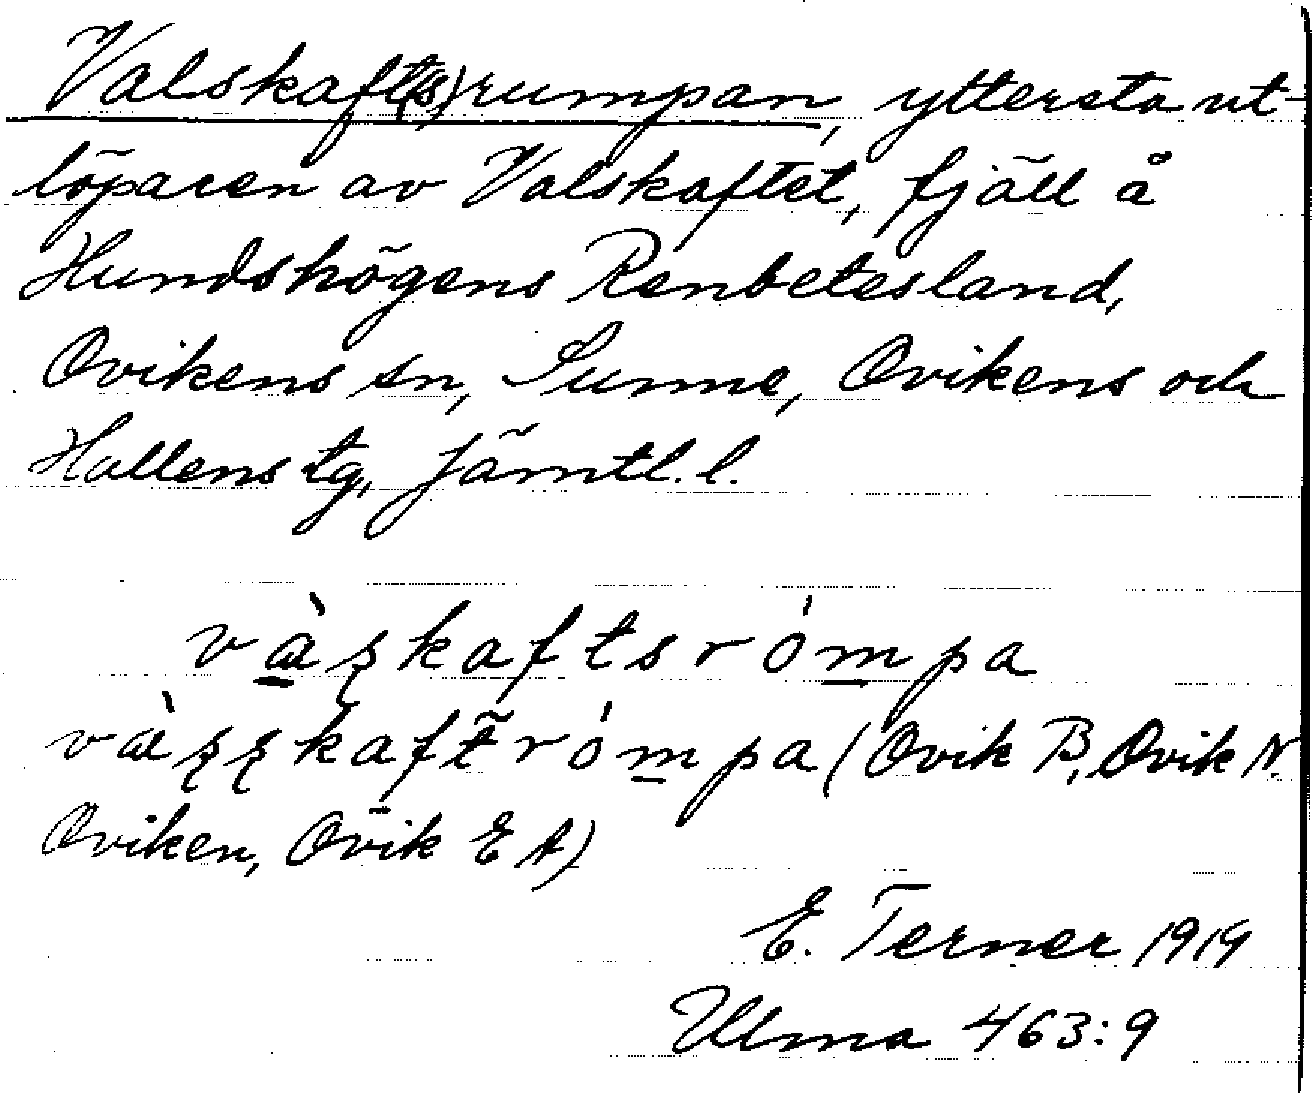 Valskaft(s)rumpan, yttersta ut-
löparen av Valskaftet, fjäll å
Hundshögens Renbetesland,
Ovikens sn, Sunne, Ovikens och
Hallens tg, Jämtl. l.
vàʂkaftsrómpa
vàʂʂkaft̃rómpa (Ovik B, Ovik N.
Oviken, Ovik E A)
E. Terner 1919
Ulma 463:9